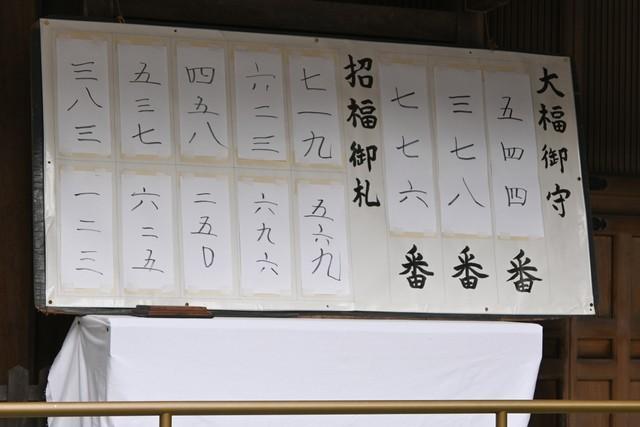 大福御守
五四四番
三七八番
七七六番
招福御札
七一九
六二三
四五八
五三七
三八三
五六九
六九六
二五〇
六二五
一二三